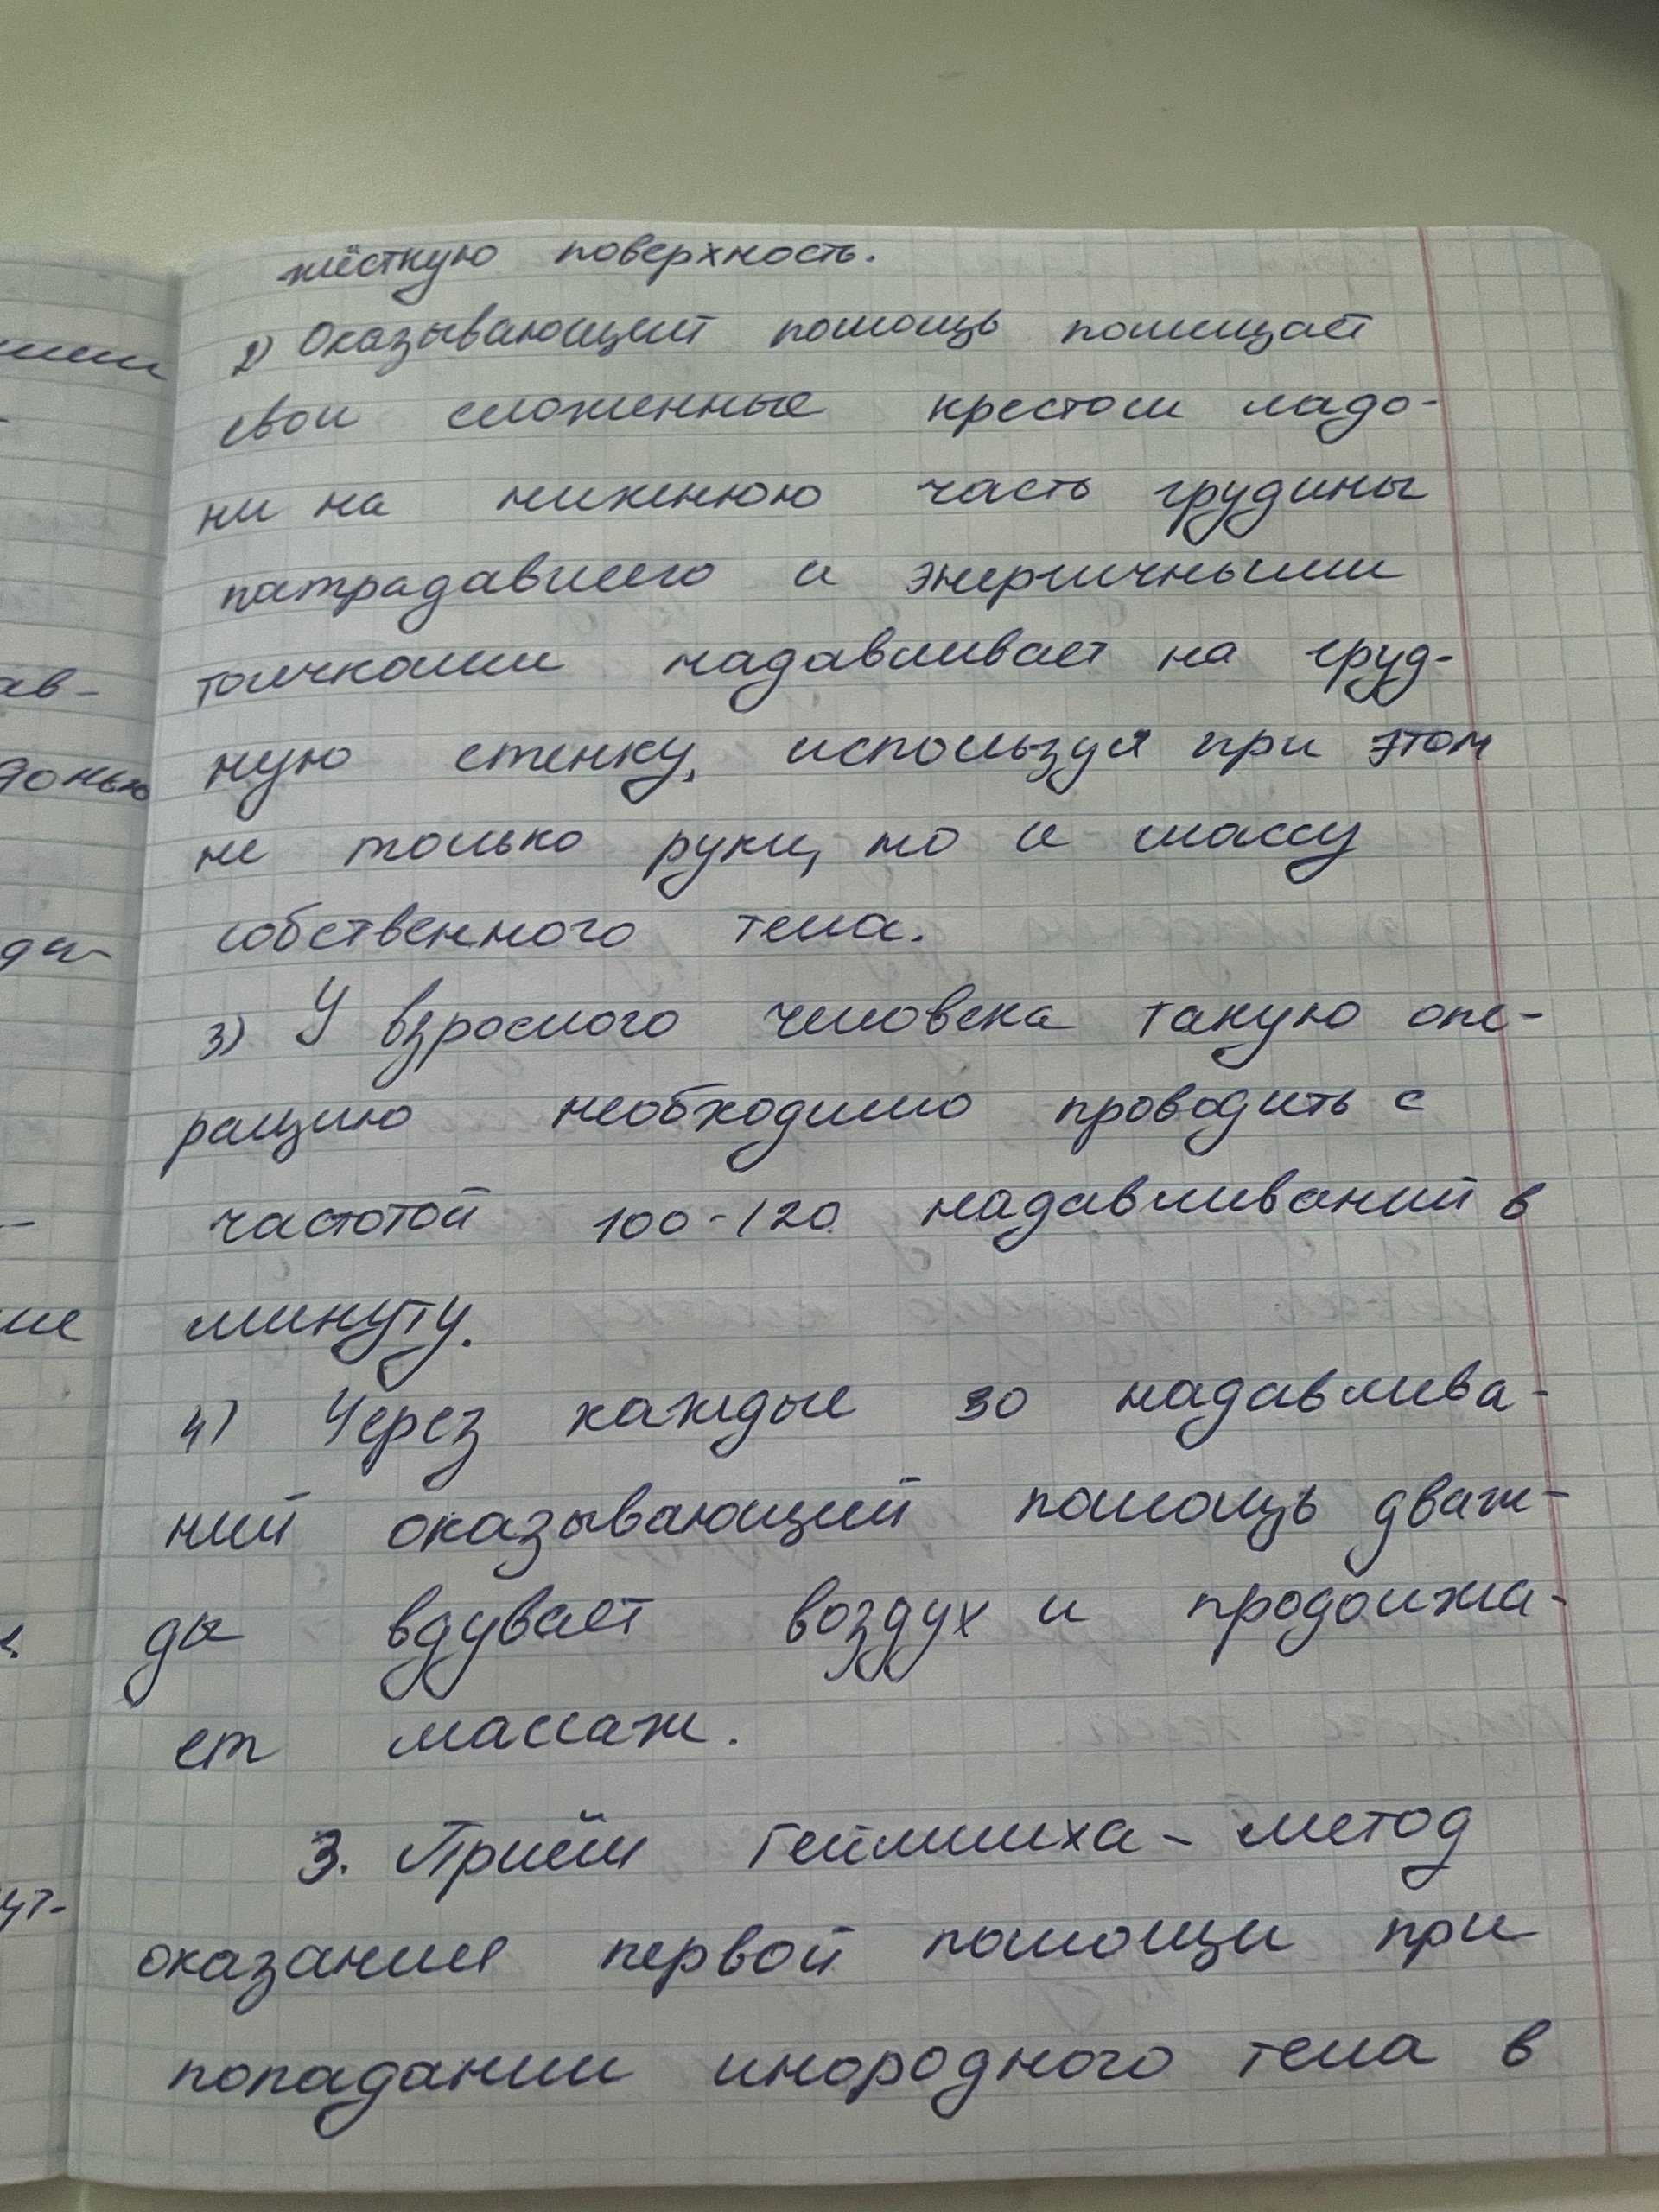 жёсткую поверхность.
2) Оказывающий помощь помещает
свои сложенные крестом ладо-
ни на нижнюю часть грудины
патрадавшего и энергичными
толчками надавливает на груд-
ную стенку, используя при этом
не только руки, но и массу
собственного тела.
3) У взрослого человека такую опе-
рацию необходимо проводить с
частотой 100-120 надавливаний в
минуту.
4) Через каждые 30 надавлива-
ний оказывающий помощь дваж-
ды вдувает воздух и продолжа-
ет массаж.
3. Приём Геймлиха - метод
оказания первой помощи при
попадании инородного тела в